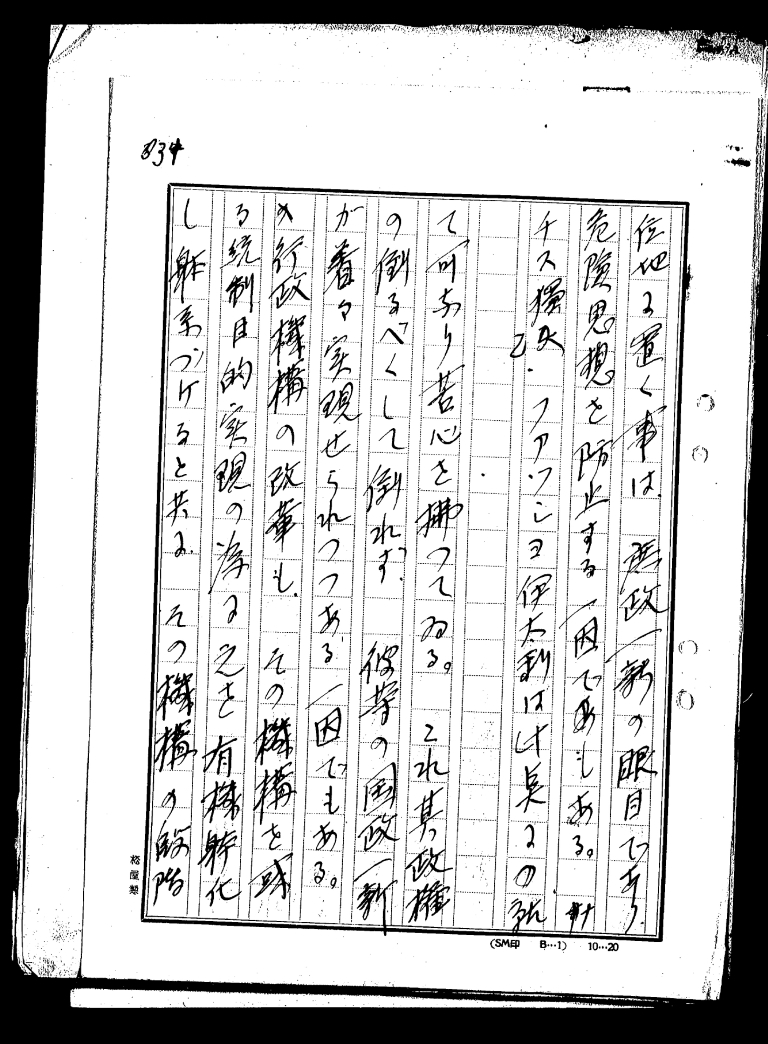 834
位地に置く事は、庶政一新の眼目であり、
危険思想を防止する一因でもある。ナ
チス獨乙・ファッショ伊太利は此点に
て可なり苦心を拂つてゐる。これ其政權
の倒るべくして倒れず、彼等の国政一新
が着々実現せられつつある一因でもある。
行政機構の改革も、その機構を
る統制目的実現の為に之を有機体化
し体系づけると共に、その機構の
(SM印 B…1) 10…20